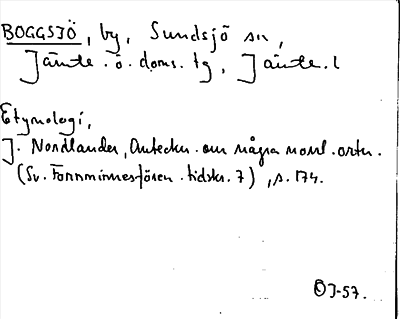 BOGGSJÖ, by, Sundsjö sn,
Jämte. ö. doms. tg, Jämte. l
Etymologi,
J. Nordlander, Anteckn. om några norrl. ortn.
(Sv. Fornminnesfören. tidskr. 7), s. 174.
ÖJ-57.